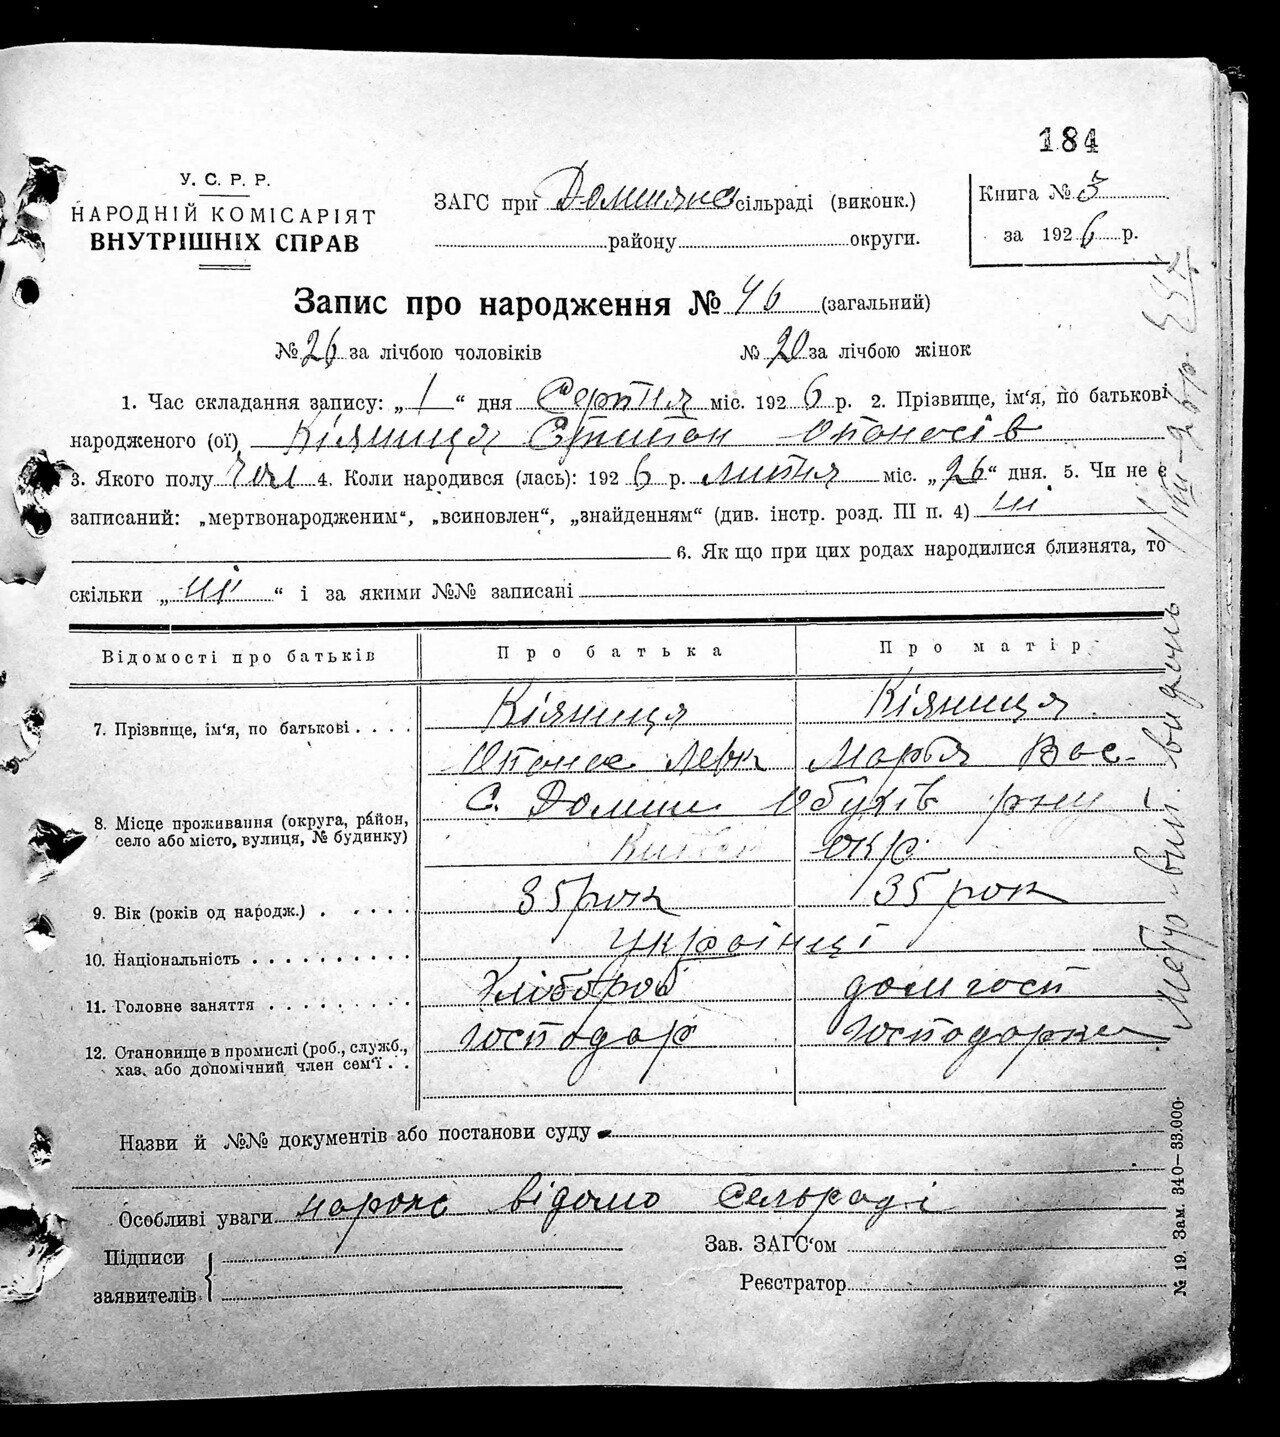 184
У. С. Р. Р.
НАРОДНІЙ КОМІСАРІЯТ
ВНУТРІШНІХ СПРАВ
ЗАГС при сільраді (виконк.)
району округи.
Книга № 3
за 1926 р.
Запис про народження № 46 (загальний)
№ 26 за лічбою чоловіків № 20 за лічбою жінок
1. Час складання запису: „1“ дня Серпня міс. 1926 р. 2. Прізвище, ім‘я, по батькові
народженого (ої) Кіяниця Степан Опонасів
3. Якого полу чол 4. Коли народився (лась): 1926 р. липня міс. „26“ дня. 5. Чи не є
записаний: „мертвонародженим“, „всиновлен“, „знайденням“ (див. інстр. розд. III п. 4) ні
6. Як що при цих родах народилися близнята, то
скільки „ні“ і за якими №№ записані
Відомості про батьків Про батька Про матір
7. Прізвище, ім‘я, по батькові . . . . Кіяниця Кіяниця
Опанас Левк Марья Вас-
8. Місце проживання (округа, район, село або місто, вулиця, № будинку) с. Домин Обухів
окр.
9. Вік (років од народж.) . . . . . 35 рок 35 рок
10. Національність . . . . . . . . . . українці
11. Головне заняття . . . . . . . . . Хлібороб дом госп
12. Становище в промислі (роб., служб., хаз. або допомічний член сем‘ї . . господар господарка
Назви й №№ документів або постанови суду
Особливі уваги відомо сельраді
Підписи
заявителів
Зав. ЗАГС‘ом
Реєстратор
№ 19. Зам. 340—33.000.